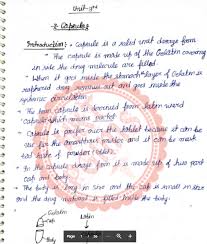 Unit-3rd
Capsules
Introduction:- Capsule is a solid unit dosage form
The capsule is made up of the Gelatin covering
in side the drug molecule are filled.
When it goes inside the stomach layer of Gelatin is
ruptured drug comes out and goes inside the
systemic circulation.
The term Capsule is derived from Latin word
capsula which means packet
Capsule is prefer over the tablet because it can be
use for the unconscious patient and it can be mask
taste of powder
In the capsule dosage form it is made up of two part
and body.
The body is long in size and the cap is small in size
and the drug material is filled inside the body.
Gelatin
Cap
Body
Page 1